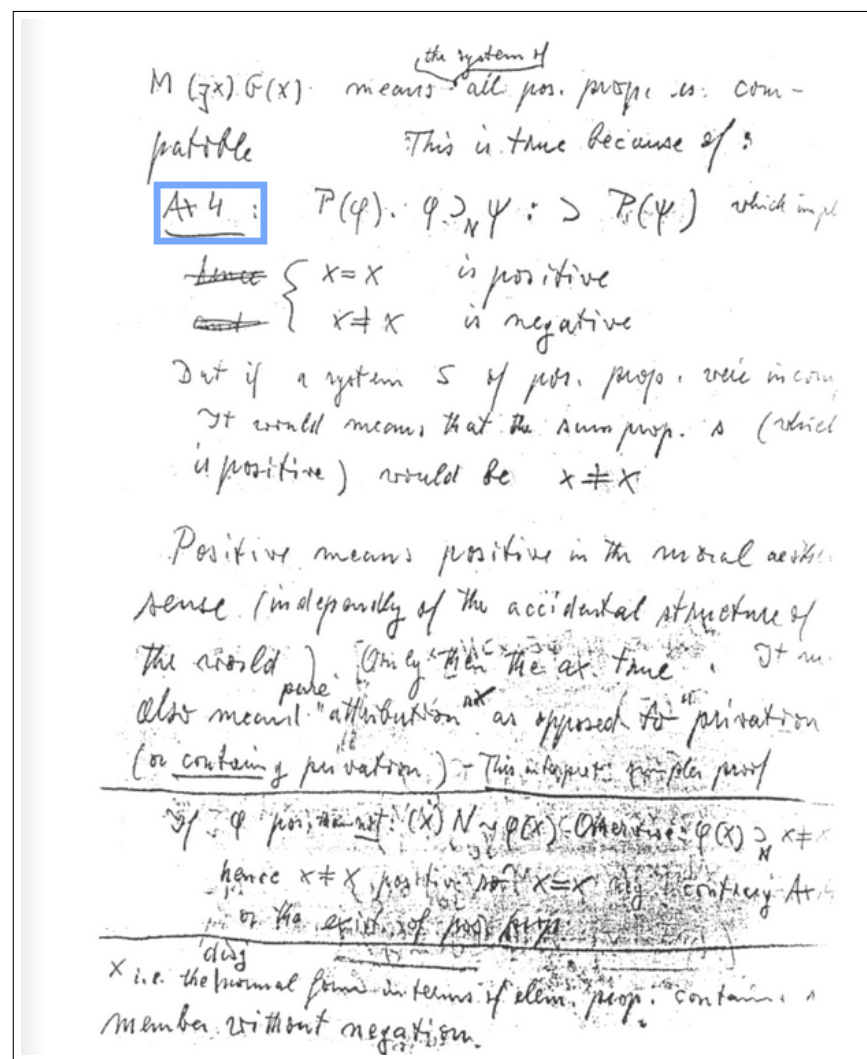 the system of
M (∃x) G(x) means all pos. prop. is com-
patible This is true because of:
Ax 4: P(φ). φ ⊃_N ψ :⊃ P(ψ) which impl
hence { x=x is positive
and { x≠x is negative
But if a system S of pos. prop. were incom
It would mean, that the sum prop. s (which
is positive) would be x≠x
Positive means positive in the moral aesthe
sense (indepently of the accidental structure of
the world). Only then the ax. true. It m
pure
also mean "attribution" x as opposed to "privation
(or containing privation) – This interpret. simpler proof
If φ pos. then not: (x) N ~ φ(x) – Otherwise: φ(x) ⊃_N x≠
hence x≠x positive so x=x neg. contrary Ax. 4
or the exist. of pos. prop.
disj
x i.e. the normal form in terms of elem. prop. contain.
member without negation.